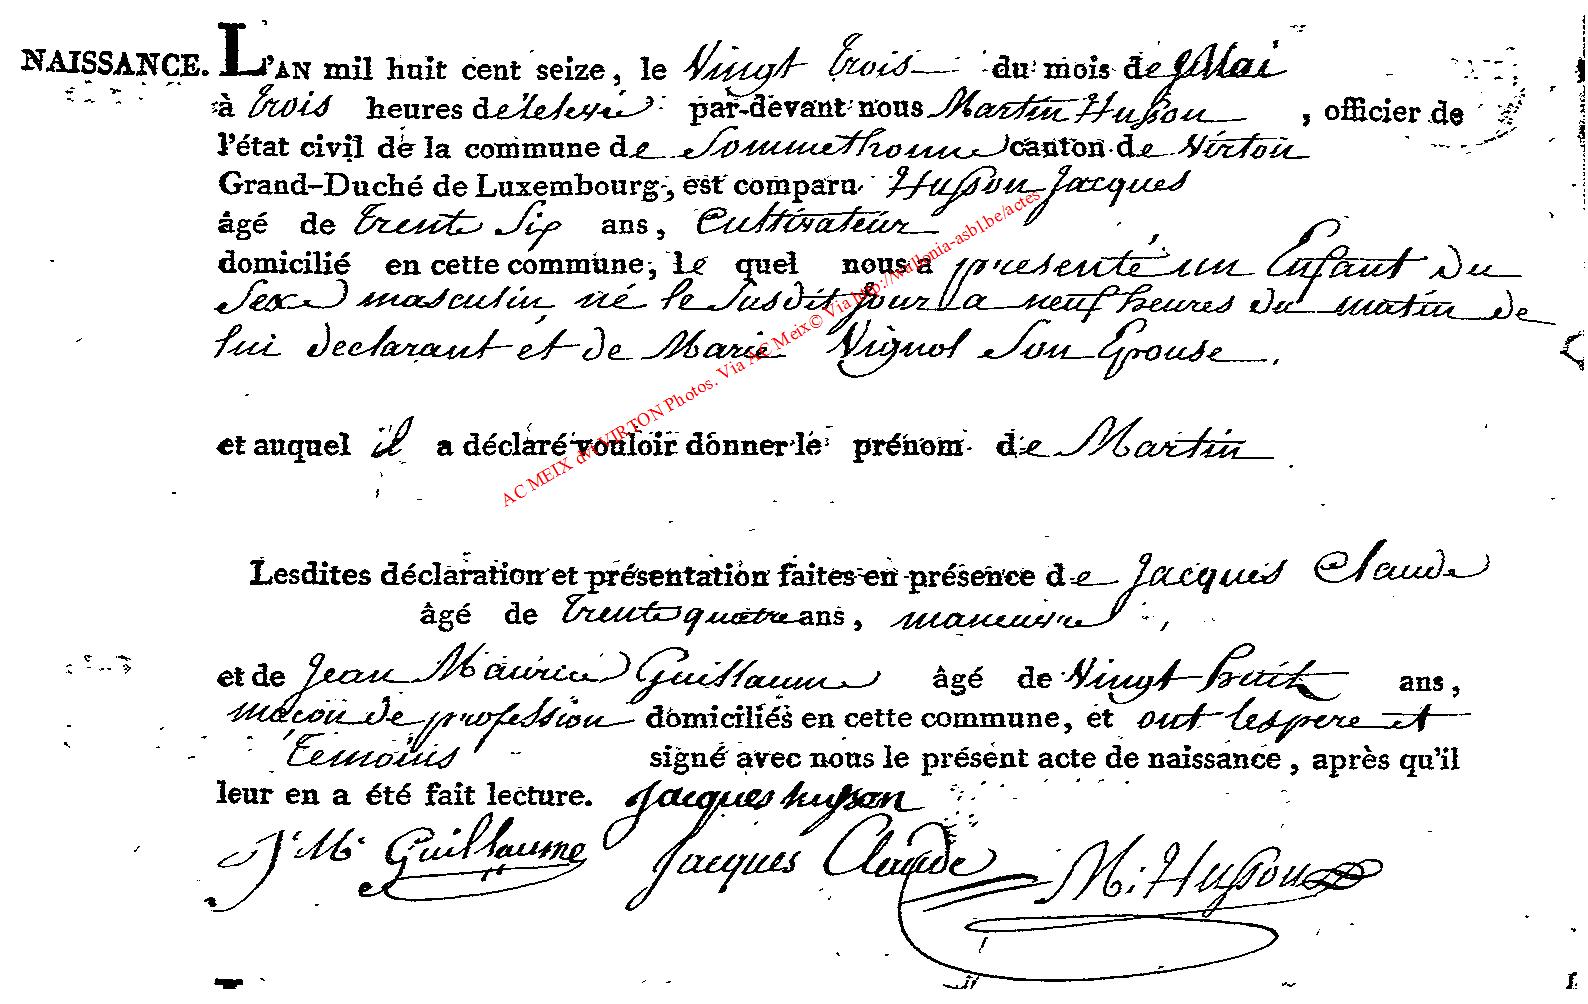 NAISSANCE. L'AN mil huit cent seize, le Vingt trois du mois de Mai
à trois heures de relevé par-devant nous Martin Husson, officier de
l'état civil de la commune de Sommethonne canton de Virton
Grand-Duché de Luxembourg, est comparu Husson Jacques
âgé de trente Six ans, Cultivateur
domicilié en cette commune, le quel nous a présenté un Enfant du
Sexe masculin, né le Susdit jour a neuf heures du matin de
lui declarant et de Marie Vignol Son Epouse.
et auquel il a déclaré vouloir donner le prénom de Martin
Lesdites déclaration et présentation faites en présence de Jacques Claude
âgé de trente quatre ans, maneuvre,
et de Jean Maurice Guillaume âgé de Vingt huit ans,
maçon de profession domiciliés en cette commune, et ont les pere et
temoins signé avec nous le présent acte de naissance, après qu'il
leur en a été fait lecture. Jacques husson
J. M. Guillaume Jacques Claude M. Husson
AC MEIX dvt VIRTON Photos. Via AC Meix© Via http://wallonia-asbl.be/actes